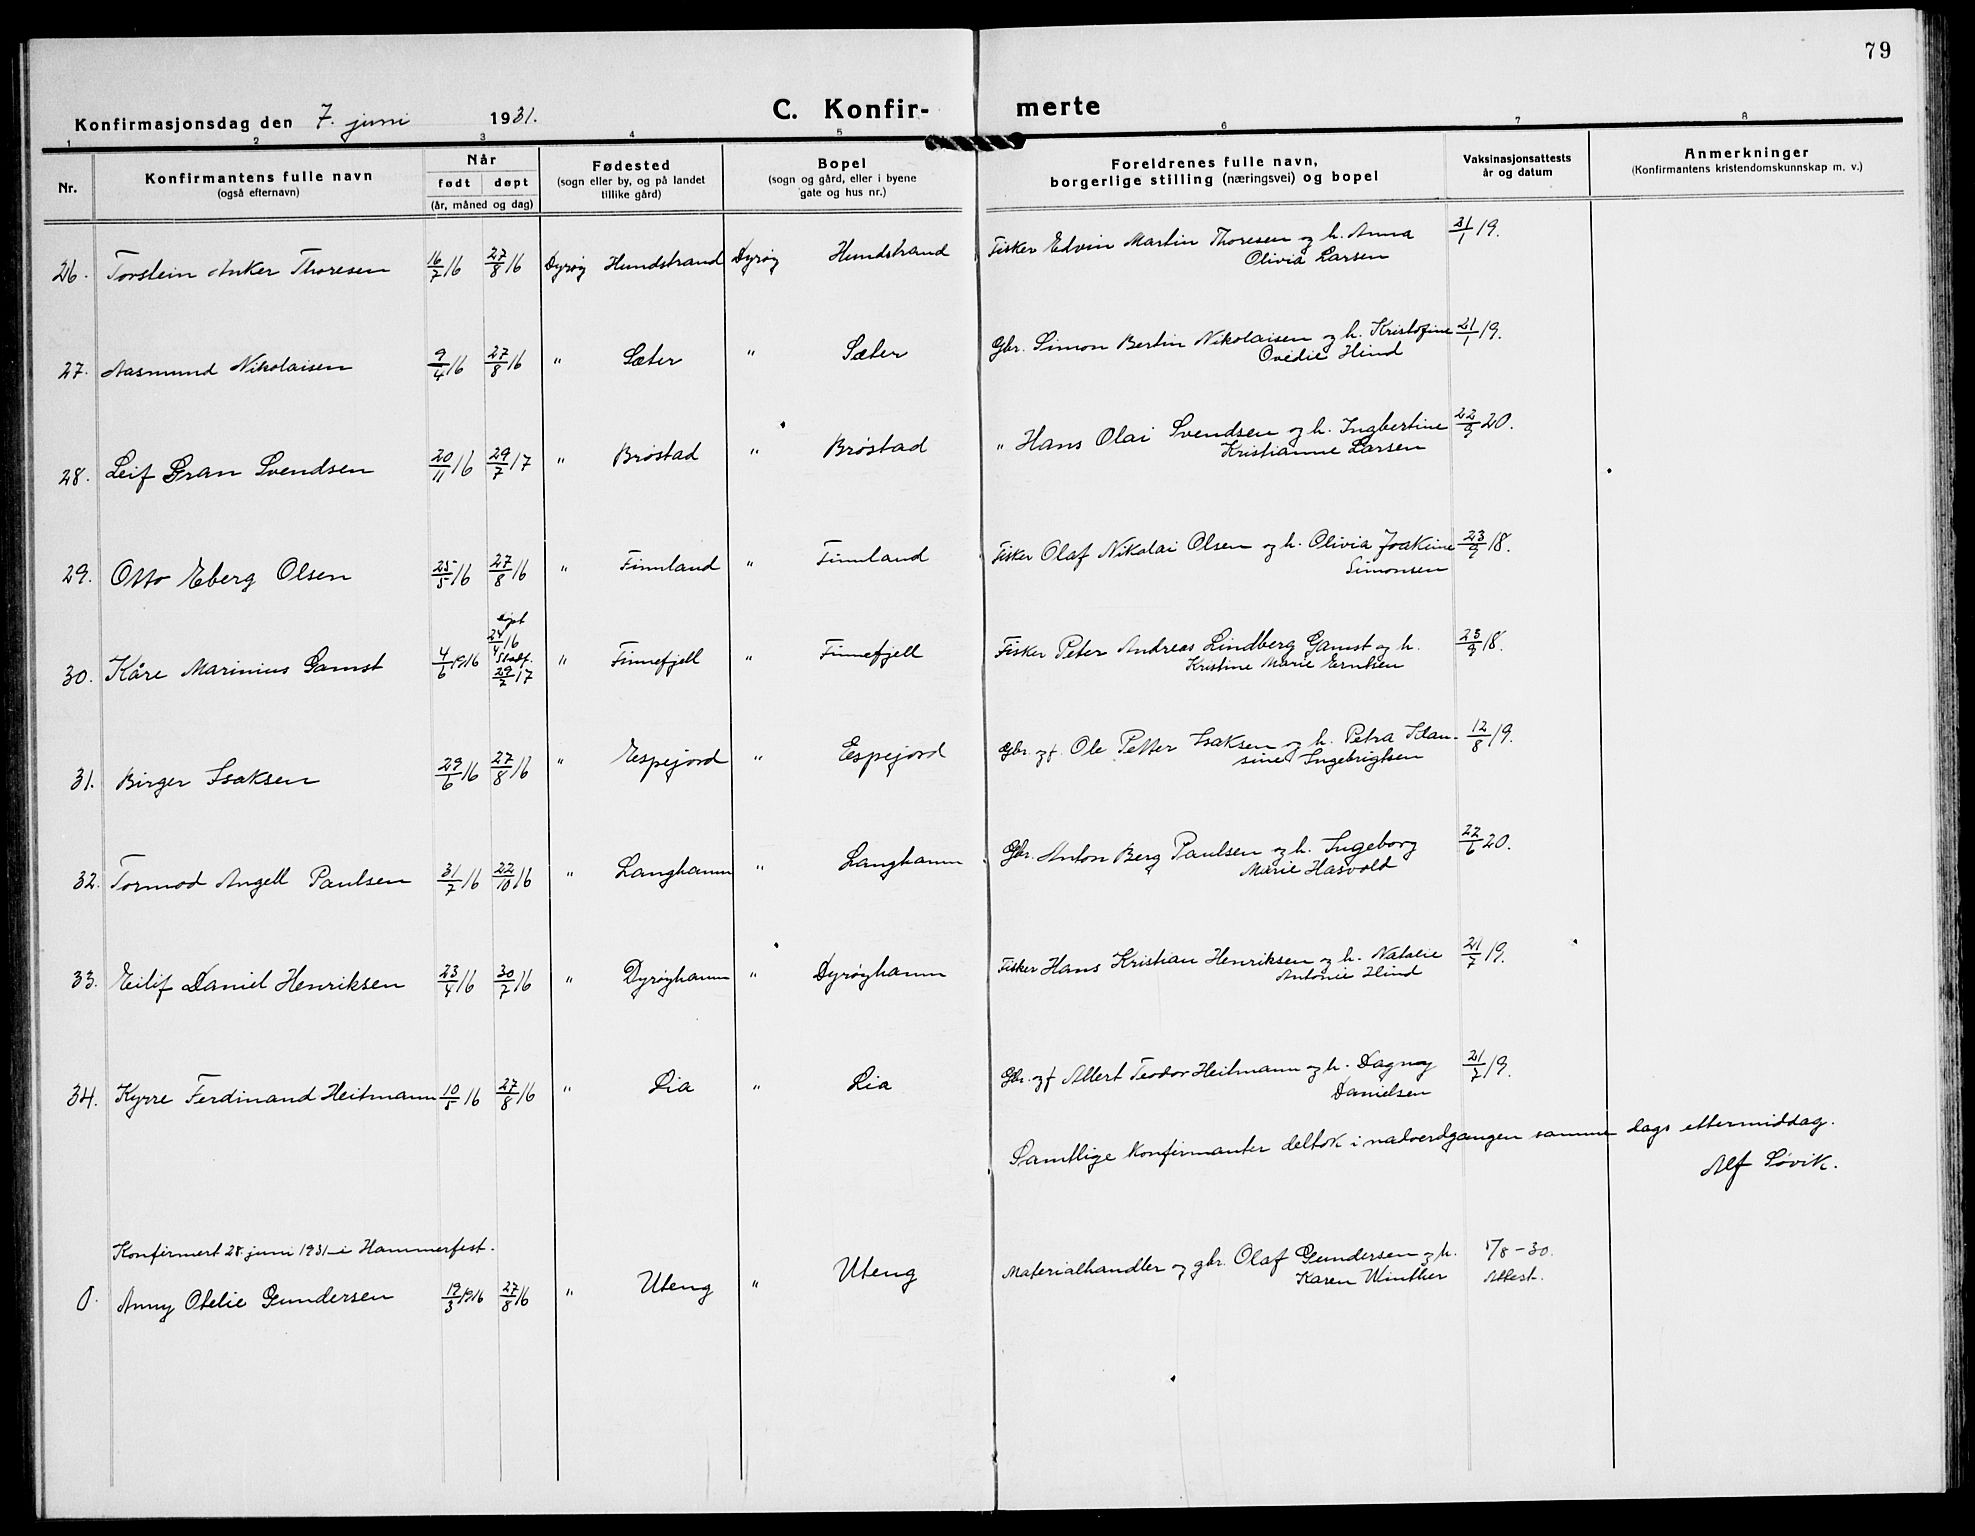 79
Konfirmasjonsdag den 7. juni 1931. C. Konfir- merte
1 2 3 4 5 6 7 8
Nr. Konfirmantens fulle navn (også efternavn) Når født døpt (år, måned og dag) Fødested (sogn eller by, og på landet tillike gård) Bopel (sogn og gård, eller i byene gate og hus nr.) Foreldrenes fulle navn, borgerlige stilling (næringsvei) og bopel Vaksinasjonsattests år og datum Anmerkninger (Konfirmantens kristendomskunnskap m. v.)
26. Torstein Anker Thoresen 16/7 16 27/8 16 Dyrøy Hundstrand Dyrøy Hundstrand Fisker Edvin Martin Thoresen og h. Anna 31/1 19.
Olivia Larsen
27. Aasmund Nikolaisen 9/4 16 27/8 16 " Sæter " Sæter Gbr. Simon Bertin Nikolaisen og h. Kristofine 21/1 19.
Ovedie Hind
28. Leif Gran Svendsen 20/11 16 29/7 17 " Brøstad " Brøstad " Hans Olai Svendsen og h. Ingbertine 22/9 20.
Kristianne Larsen
29. Otto Eberg Olsen 25/5 16 27/8 16 " Finnland " Finnland Fisker Olaf Nikolai Olsen og h. Olivia Joakime 23/9 18.
Simonsen
døpt
24/4 16
Stadf.
30. Kåre Marinius Gamst 4/6 1916 29/7 17 " Finnefjell " Finnefjell Fisker Peter Andreas Lindberg Gamst og h. 23/9 18.
Kristine Marie Erntsen
31. Birger Isaksen 29/6 16 27/8 16 " Espejord " Espejord Gbr. og f. Ole Petter Isaksen og h. Petra Klau- 12/8 19.
sine Ingebrigtsen
32. Tormod Angell Paulsen 31/7 16 22/10 16 " Langhamn " Langhamn Gbr. Anton Berg Paulsen og h. Ingeborg 22/6 20.
Marie Hasvold
33. Eilif Daniel Henriksen 23/4 16 30/7 16 " Dyrøyhamn " Dyrøyhamn Fisker Hans Kristian Henriksen og h. Natalie 21/7 19.
Antonie Hind
34. Kyrre Ferdinand Heitmann 10/5 16 27/8 16 " Lia " Lia Gbr. og f Albert Teodor Heitmann og h. Dagny 21/7 19.
Danielsen
Samtlige konfirmanter deltok i nadverdgangen samme dags ettermiddag.
Alf Søvik.
Konfirmert 28. juni 1931 i Hammerfest.
0. Anny Otelie Gundersen 19/3 1916 27/8 16 " Uteng " Uteng Materialhandler og gbr. Olaf Gundersen og h. 1/8-30.
Karen Winther Attest.